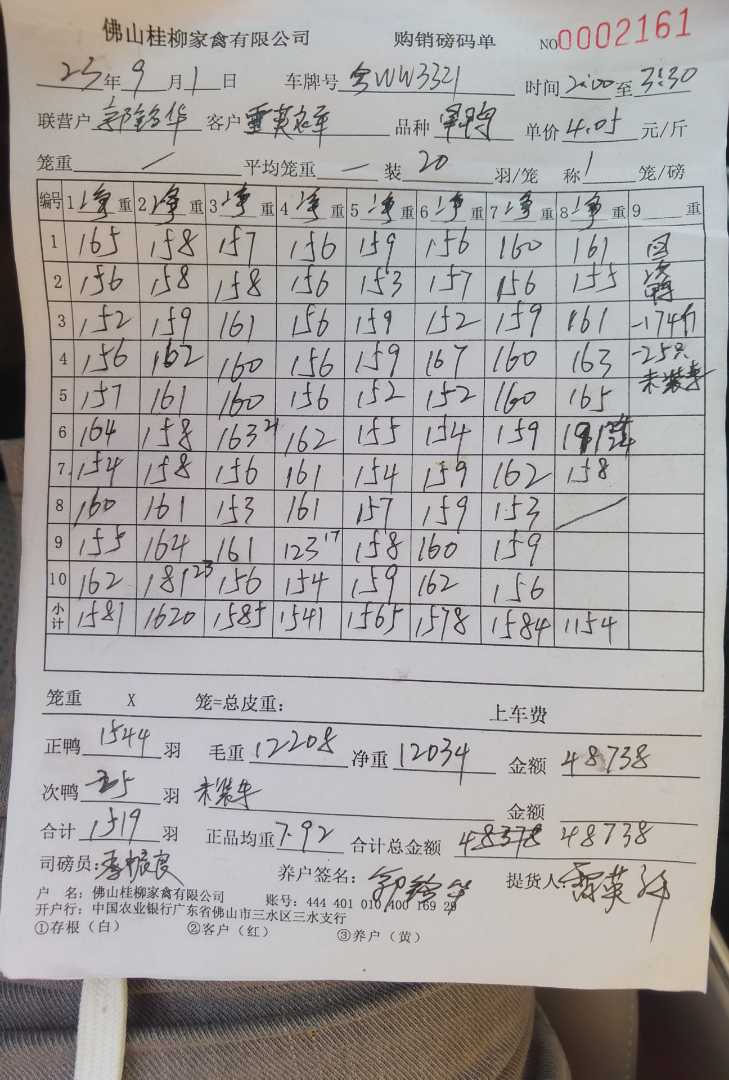 佛山桂柳家禽有限公司 购销磅码单 NO0002161
23年9月1日 车牌号 粤WW3321 时间2:00至3:30
联营户 客户 品种 单价4.05元/斤
笼重 / 平均笼重 — 装20羽/笼 称1笼/磅
编号 1净重 2净重 3净重 4净重 5净重 6净重 7净重 8净重 9 重
1 165 158 157 156 159 156 160 161
2 156 158 158 156 153 157 156 155
3 152 159 161 156 159 152 159 161 -174斤
4 156 162 160 156 159 167 160 163 -25只
5 157 161 160 156 152 152 160 165 未装车
6 164 158 163 21 162 155 154 159
7 154 158 156 161 154 159 162 158
8 160 161 153 161 157 159 153 /
9 155 164 161 123 17 158 160 159
10 162 181 23 156 154 159 162 156
小计 1581 1620 1585 1541 1565 1578 1584 1154
笼重 X 笼=总皮重: 上车费
正鸭1544羽 毛重12208 净重12034 金额48738
次鸭25羽 未装车 金额
合计1519羽 正品均重7.92 合计总金额 48378 48738
司磅员: 养户签名: 提货人:
户 名: 佛山桂柳家禽有限公司 账号: 444 401 010 400 169 29
开户行: 中国农业银行广东省佛山市三水区三水支行
①存根(白) ②客户(红) ③养户(黄)